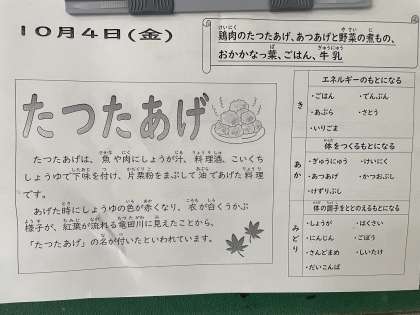 10月4日(金)
鶏肉のたつたあげ、あつあげと野菜の煮もの、
おかかなっ葉、ごはん、牛乳
たつたあげ
たつたあげは、魚や肉にしょうが汁、料理酒、こいくち
しょうゆで下味を付け、片栗粉をまぶして油であげた料理
です。
あげた時にしょうゆの色が赤くなり、衣が白くうかぶ
様子が、紅葉が流れる竜田川に見えたことから、
「たつたあげ」の名が付いたといわれています。
き
エネルギーのもとになる
・ごはん ・でんぷん
・あぶら ・さとう
・いりごま
あか
体をつくるもとになる
・ぎゅうにゅう ・けいにく
・あつあげ ・かつおぶし
・けずりぶし
みどり
体の調子をととのえるもとになる
・しょうが ・はくさい
・にんじん ・ごぼう
・さんどまめ ・しいたけ
・だいこんば